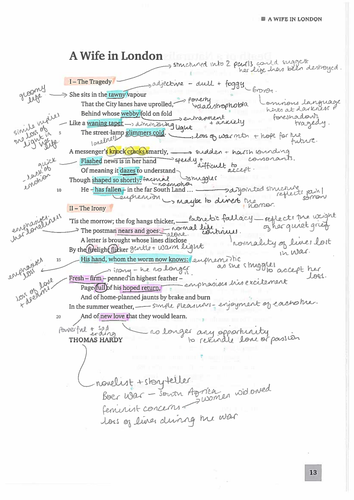 A WIFE IN LONDON
A Wife in London
structured into 2 parts could suggest
her life has been destroyed.
I – The Tragedy
adjective – dull + foggy
gloomy
life
She sits in the tawny vapour
That the City lanes have uprolled,
poverty
claustrophobia
ominous language
hints at darkness +
foreshadows
tragedy.
Behind whose webby fold on fold
Like a waning taper
diminishing
light
entrapment
+ anxiety
The street-lamp glimmers cold.
loss of warmth + hope for the
future.
A messenger's knock cracks smartly,
sudden + harsh sounding
consonants.
Flashed news is in her hand
speedy +
difficult to
accept.
Of meaning it dazes to understand
Though shaped so shortly:
struggles
10
He – has fallen – in the far South Land...
euphemism
maybe to divert the
horror.
II – The Irony
'Tis the morrow; the fog hangs thicker,
pathetic fallacy – reflects the weight
of her quiet grief.
The postman nears and goes:
normal life
continues.
A letter is brought whose lines disclose
normality of lives lost
in war
By the firelight flicker
gentle + warm light
15
His hand, whom the worm now knows:
euphemistic
as she struggles
to accept her
loss.
irony – he no longer
Fresh – firm – penned in highest feather –
Page-full of his hoped return,
emphasises his excitement
And of home-planned jaunts by brake and burn
In the summer weather,
simple pleasures – enjoyment of each other.
20
And of new love that they would learn.
powerful + sad
ending
no longer any opportunity
to rekindle love or passion
THOMAS HARDY
novelist + storyteller
Boer War – South Africa
feminist concerns – women widowed
loss of lives during the war
13